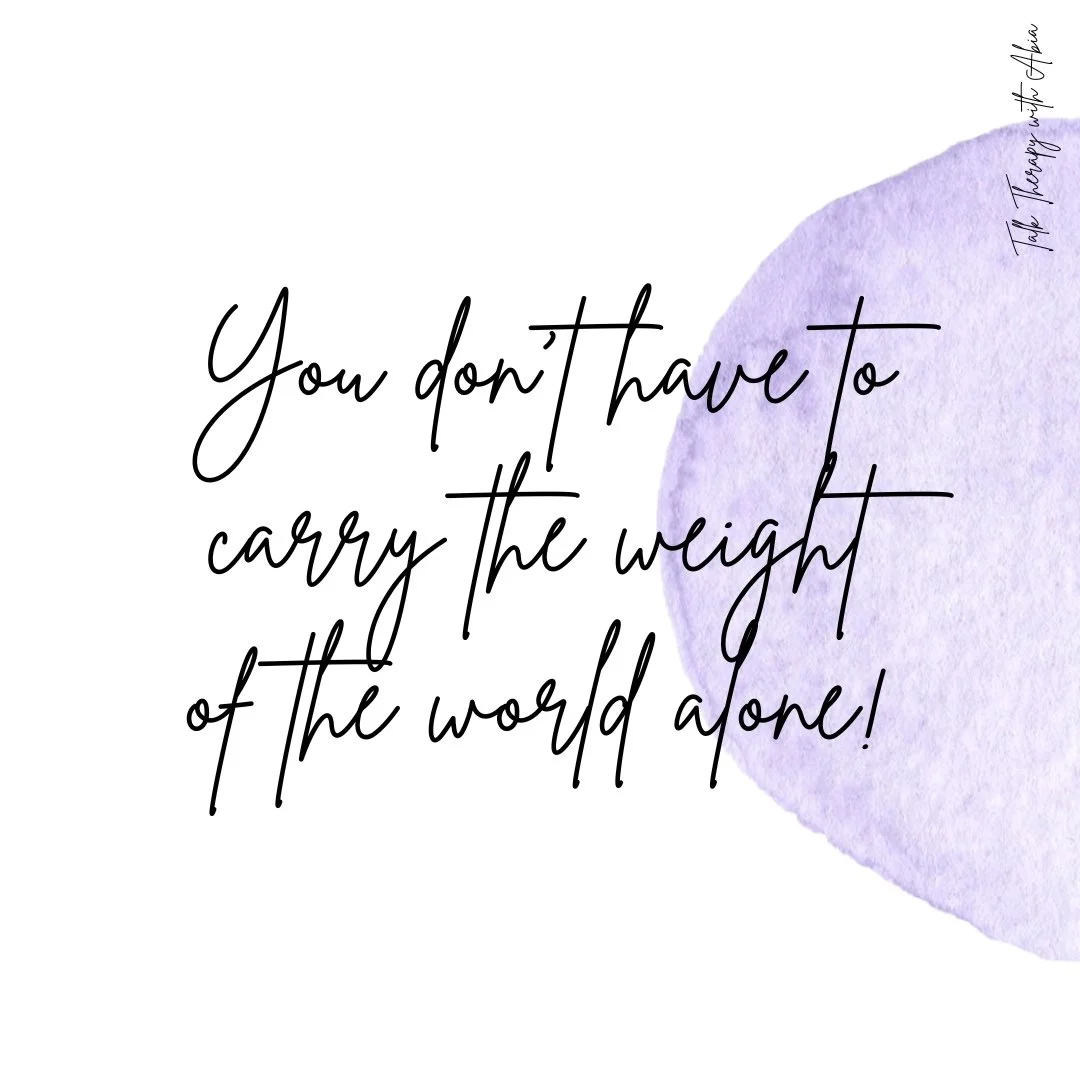 Talk Therapy with Abia
You don't have to
carry the weight
of the world alone!